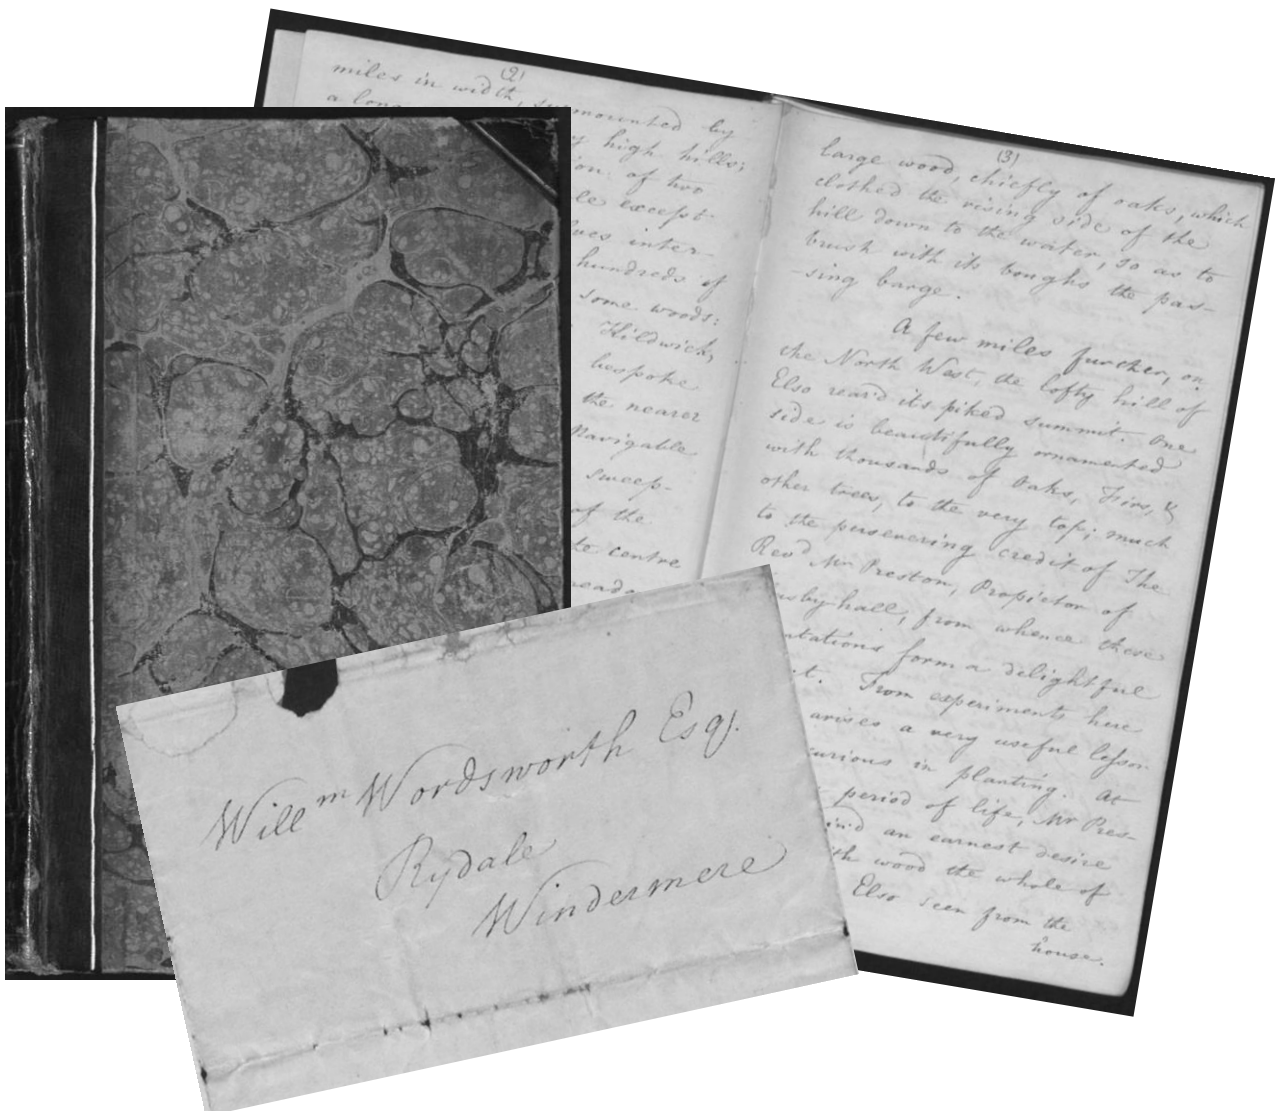 (2)
miles in width, surmounted by
a long
y high hills;
ion: of two
le except
ves inter-
hundreds of
some woods:
Kildwick,
bespoke
the nearer
Navigable
sweep-
of the
te centre
read
(3)
large wood, chiefly of oaks, which
clothed the rising side of the
hill down to the water, so as to
brush with its boughs the pas-
-sing barge.
A few miles further, on
the North West, the lofty hill of
Elso rear'd its piked summit. One
side is beautifully ornamented
with thousands of Oaks, Firs, &
other trees, to the very top; much
to the persevering credit of The
Revd Mr Preston, Propietor of
sby-hall, from whence these
ntations form a delightful
t. From experiments here
arises a very useful lesson
urious in planting. At
period of life, Mr Pres-
in'd an earnest desire
ith wood the whole of
Elso seen from the
house.
Willm Wordsworth Esqr.
Rydale
Windermere